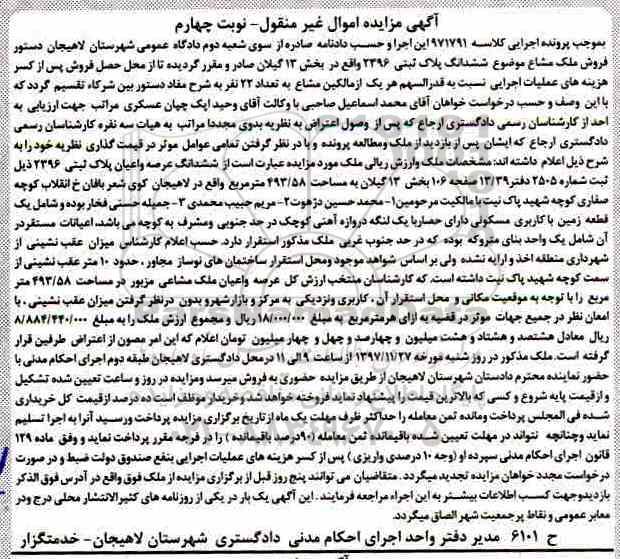 آگهی مزایده اموال غیر منقول- نوبت چهارم
بموجب پرونده اجرایی کلاسه ۹۷۱۷۹۱ این اجرا و حسب دادنامه صادره از سوی شعبه دوم دادگاه عمومی شهرستان لاهیجان دستور
فروش ملک مشاع موضوع ششدانگ پلاک ثبتی ۲۳۹۶ واقع در بخش ۱۳ گیلان صادر و مقرر گردیده تا از محل حصل فروش پس از کسر
هزینه های عملیات اجرایی نسبت به قدرالسهم هر یک ازمالکین مشاع به تعداد ۲۲ نفر به شرح مفاد دستور بین شرکاء تقسیم گردد که
با این وصف و حسب درخواست خواهان آقای محمد اسماعیل صاحبی با وکالت آقای وحید ایک چیان عسکری مراتب جهت ارزیابی به
احد از کارشناسان رسمی دادگستری ارجاع که پس از وصول اعتراض به نظریه بدوی مجددا مراتب به هیات سه نفره کارشناسان رسمی
دادگستری ارجاع که ایشان پس از بازدید از ملک ومطالعه پرونده و با در نظر گرفتن تمامی عوامل موثر در قیمت گذاری نظریه خود را به
شرح ذیل اعلام داشته اند: مشخصات ملک وارزش ریالی ملک مورد مزایده عبارت است از ششدانگ عرصه واعیان پلاک ثبتی ۲۳۹۶ ذیل
ثبت شماره ۲۵۰۵ دفتر ۱۳/۳۹ صفحه ۱۰۶ بخش ۱۳ گیلان به مساحت ۴۹۳/۵۸ مترمربع واقع در لاهیجان کوی شعر بافان خ انقلاب کوچه
صفاری کوچه شهید پاک نیت با مالکیت مرحومین ۱- محمد حسین دژهوت ۲- مریم حبیب محمدی ۳- جمیله حسنی فخار بوده و شامل یک
قطعه زمین با کاربری مسکونی دارای حصاربا یک لنگه دروازه آهنی کوچک در حد جنوبی ومشرف به کوچه می باشد. اعیانات مستقردر
آن شامل یک واحد بنای متروکه بوده که در حد جنوب غربی ملک مذکور استقرار دارد. حسب اعلام کارشناس میزان عقب نشینی از
شهرداری منطقه اخذ و ارایه نشده ولی بر اساس شواهد موجود ومحل استقرار ساختمان های نوساز مجاور ، حدود ۱۰ متر عقب نشینی از
سمت کوچه شهید پاک نیت داشته است. که کارشناسان منتخب ارزش کل عرصه واعیان ملک مشاعی مزبور در مساحت ۴۹۳/۵۸ متر
مربع را با توجه به موقعیت مکانی و محل استقرار آن ، کاربری ونزدیکی به مرکز و بازارشهرو بدون درنظر گرفتن میزان عقب نشینی ، با
امعان نظر در جمیع جهات موثر در قضیه به ازای هرمترمربع به مبلغ ۱۸/۰۰۰/۰۰۰ ریال و مجموع ارزش ملک را به مبلغ ۸/۸۸۴/۴۴۰/۰۰۰
ریال معادل هشتصد و هشتاد و هشت میلیون و چهارصد و چهل و چهار میلیون تومان اعلام که این امر مصون از اعتراض طرفین قرار
گرفته است. ملک مذکور در روز شنبه مورخه ۱۳۹۷/۱۱/۲۷ از ساعت ۹ الی ۱۱ درمحل دادگستری لاهیجان طبقه دوم اجرای احکام مدنی با
حضور نماینده محترم دادستان شهرستان لاهیجان از طریق مزایده حضوری به فروش میرسد ومزایده در روز و ساعت تعیین شده تشکیل
و ازقیمت پایه شروع و کسی که بالاترین قیمت را پیشنهاد نماید فروخته خواهد شد وخریدار موظف است ده درصد ازقیمت کل خریداری
شده فی المجلس پرداخت ومانده ثمن معامله را حداکثر ظرف مهلت یک ماه از تاریخ برگزاری مزایده پرداخت ورسید آنرا به اجرا تسلیم
نماید وچنانچه نتواند در مهلت تعیین شده باقیمانده ثمن معامله (۹۰درصد باقیمانده ) را در فرجه مقرر پرداخت نماید و وفق ماده ۱۲۹
قانون اجرای احکام مدنی سپرده او (وجه ۱۰ درصدی واریزی ) پس از کسر هزینه های عملیات اجرایی بنفع صندوق دولت ضبط و در صورت
درخواست مجدد خواهان مزایده تجدید میگردد. متقاضیان می توانند پنج روز قبل از برگزاری مزایده از ملک فوق واقع در آدرس فوق الذکر
بازدیدوجهت کسب اطلاعات بیشتر به این اجراء مراجعه فرمایند. این آگهی یک بار در یکی از روزنامه های کثیرالانتشار محلی درج ودر
معابر عمومی و نقاط پرجمعیت شهر الصاق میگردد.
ح ۶۱۰۱ مدیر دفتر واحد اجرای احکام مدنی دادگستری شهرستان لاهیجان- خدمتگزار